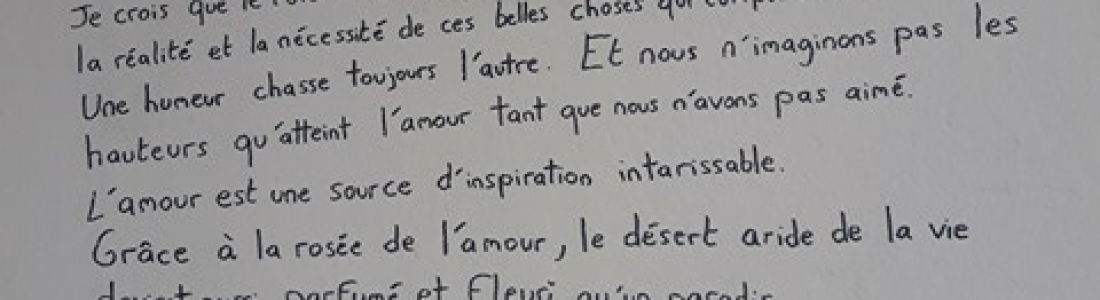 Je crois que le
la réalité et la nécessité de ces belles choses qui
Une humeur chasse toujours l'autre. Et nous n'imaginons pas les
hauteurs qu'atteint l'amour tant que nous n'avons pas aimé.
L'amour est une source d'inspiration intarissable.
Grâce à la rosée de l'amour, le désert aride de la vie
parfumé et fleuri qu'un